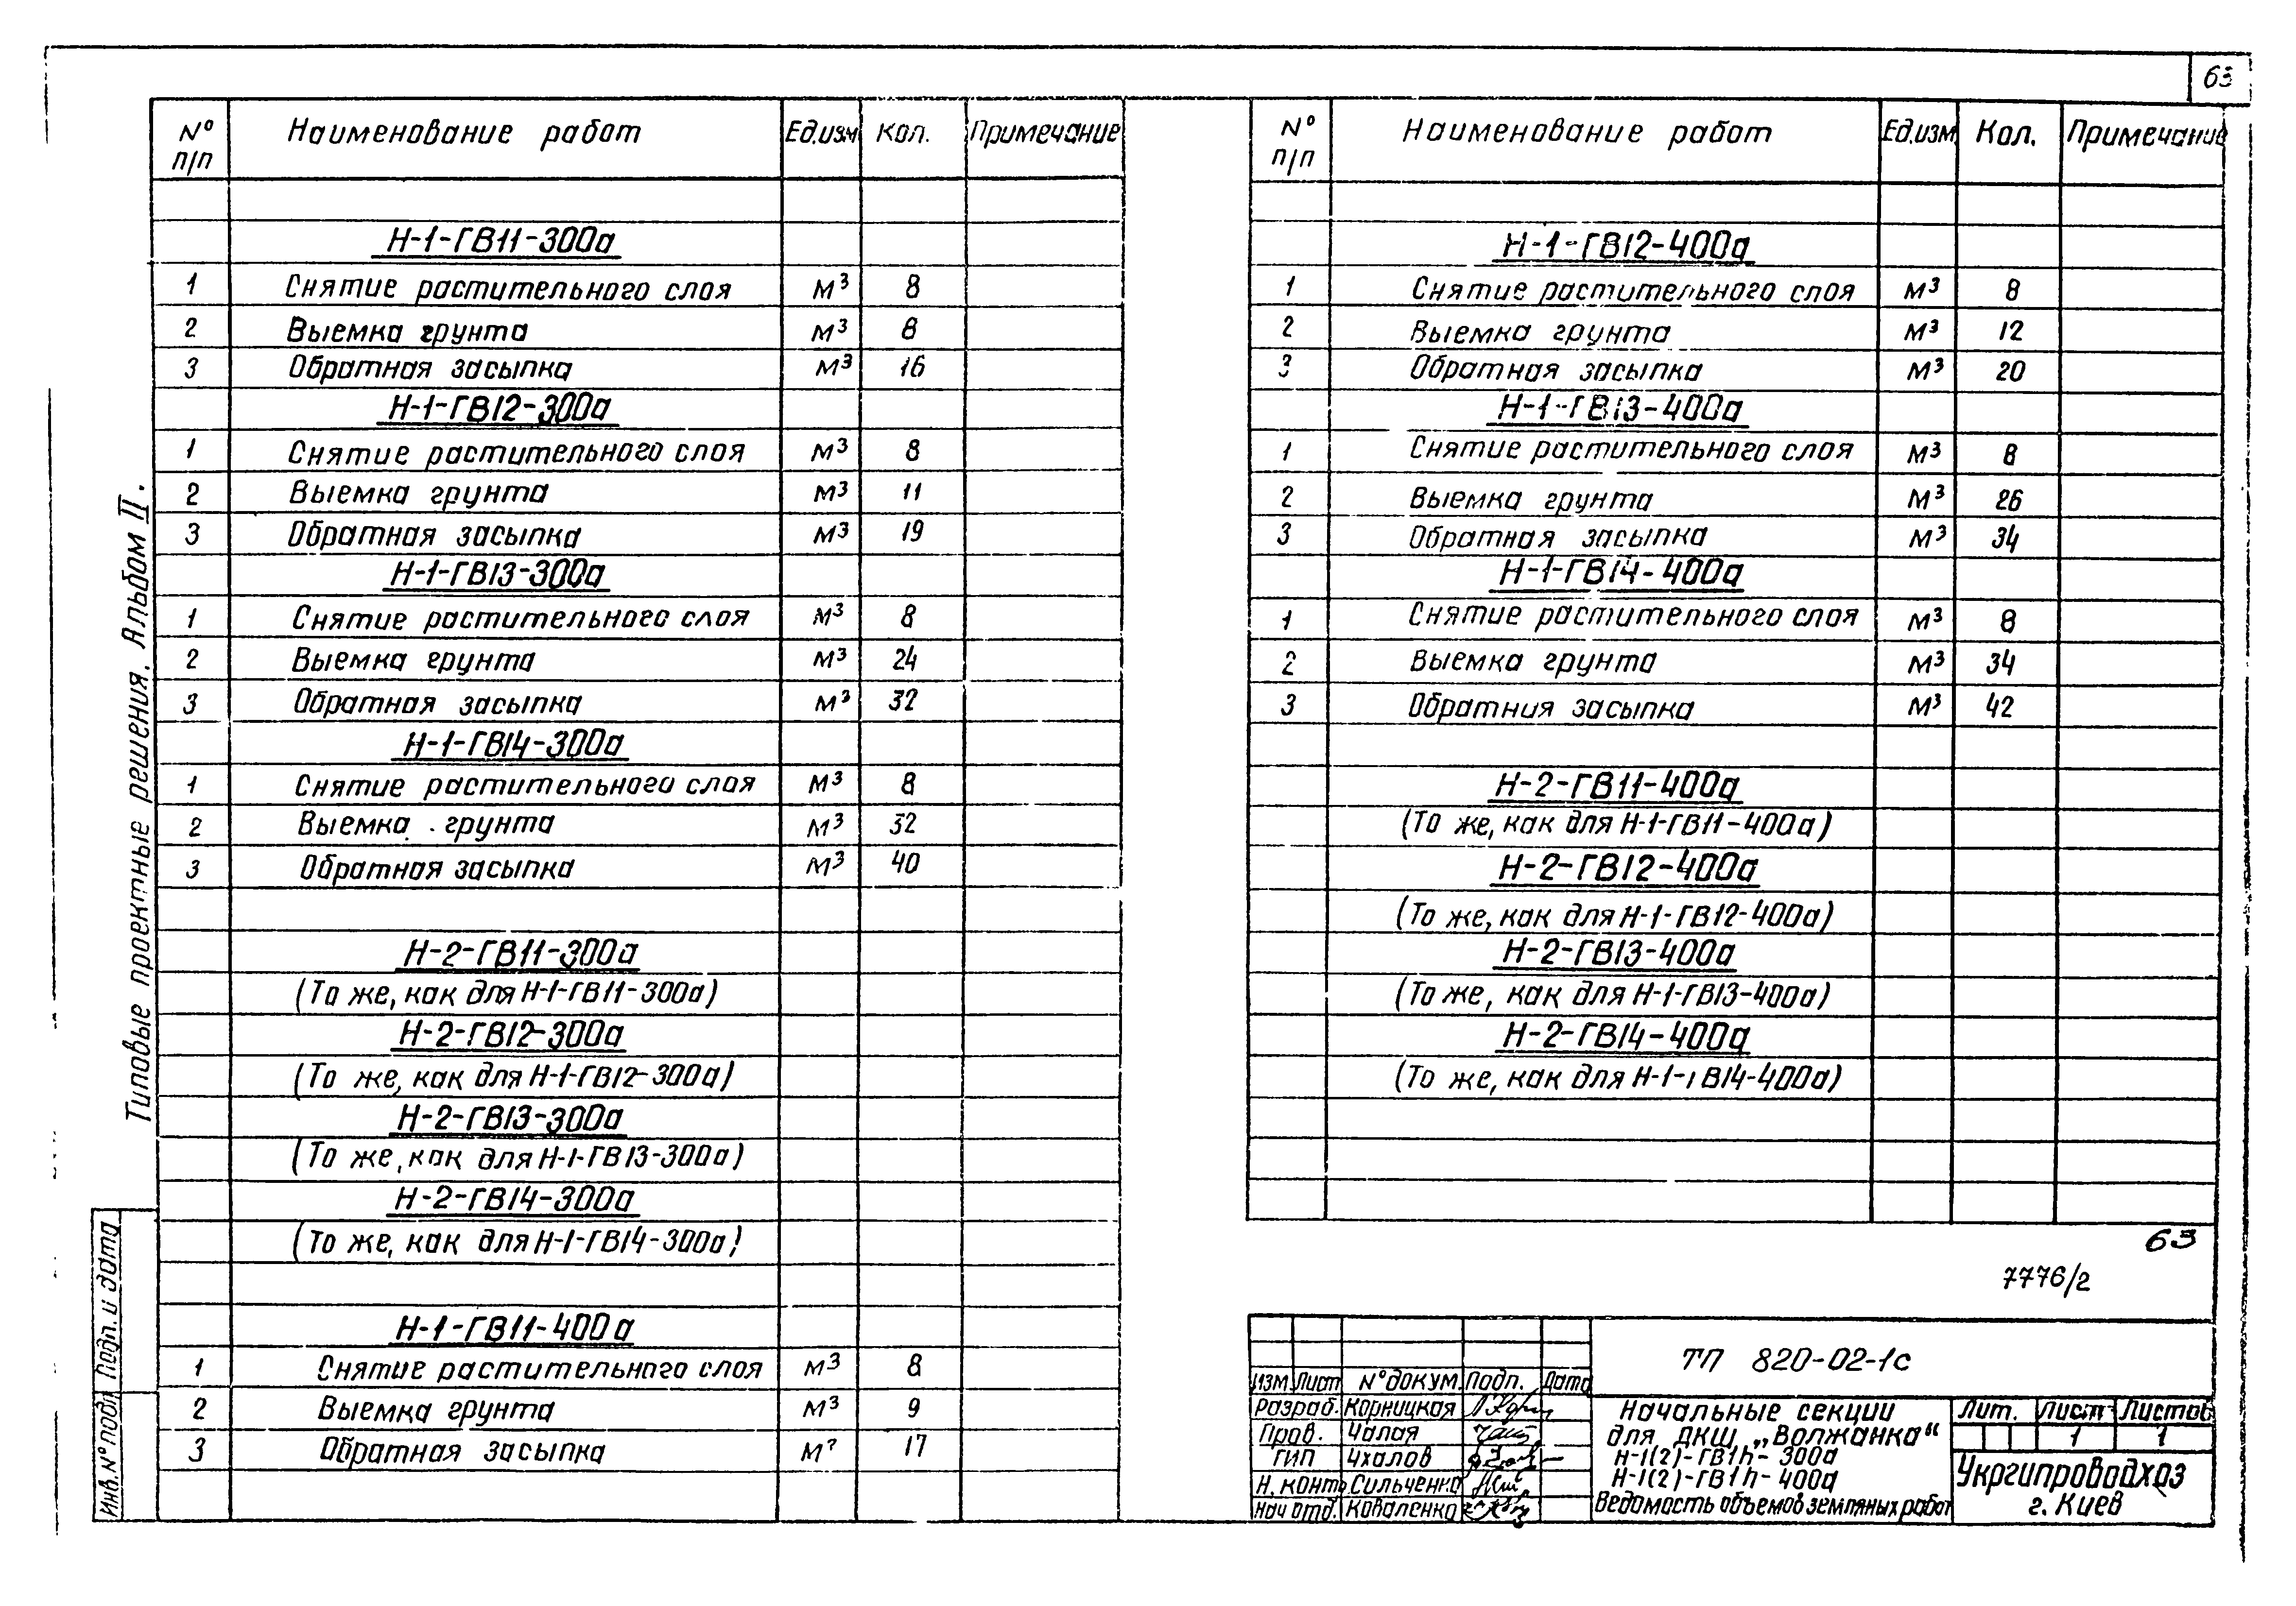 63
№ п/п Наименование работ Ед.изм Кол. Примечание
Н-1-ГВ11-300а
1 Снятие растительного слоя м³ 8
2 Выемка грунта м³ 8
3 Обратная засыпка м³ 16
Н-1-ГВ12-300а
1 Снятие растительного слоя м³ 8
2 Выемка грунта м³ 11
3 Обратная засыпка м³ 19
Н-1-ГВ13-300а
1 Снятие растительного слоя м³ 8
2 Выемка грунта м³ 24
3 Обратная засыпка м³ 32
Н-1-ГВ14-300а
1 Снятие растительного слоя м³ 8
2 Выемка грунта м³ 32
3 Обратная засыпка м³ 40
Н-2-ГВ11-300а
(То же, как для Н-1-ГВ11-300а)
Н-2-ГВ12-300а
(То же, как для Н-1-ГВ12-300а)
Н-2-ГВ13-300а
(То же, как для Н-1-ГВ13-300а)
Н-2-ГВ14-300а
(То же, как для Н-1-ГВ14-300а)
Н-1-ГВ11-400а
1 Снятие растительного слоя м³ 8
2 Выемка грунта м³ 9
3 Обратная засыпка м³ 17
№ п/п Наименование работ Ед.изм Кол. Примечание
Н-1-ГВ12-400а
1 Снятие растительного слоя м³ 8
2 Выемка грунта м³ 12
3 Обратная засыпка м³ 20
Н-1-ГВ13-400а
1 Снятие растительного слоя м³ 8
2 Выемка грунта м³ 26
3 Обратная засыпка м³ 34
Н-1-ГВ14-400а
1 Снятие растительного слоя м³ 8
2 Выемка грунта м³ 34
3 Обратная засыпка м³ 42
Н-2-ГВ11-400а
(То же, как для Н-1-ГВ11-400а)
Н-2-ГВ12-400а
(То же, как для Н-1-ГВ12-400а)
Н-2-ГВ13-400а
(То же, как для Н-1-ГВ13-400а)
Н-2-ГВ14-400а
(То же, как для Н-1-ГВ14-400а)
63
7776/2
ТП 820-02-1с
Изм. Лист № докум. Подп. Дата
Разраб. Корницкая
Пров. Чалая
ГИП Чхалов
Н. контр. Сильченко
Нач отд. Коваленко
Начальные секции
для ДКШ „Волжанка“
Н-1(2)-ГВ1h-300а
Н-1(2)-ГВ1h-400а
Ведомость объемов земляных работ
Лит. Лист Листов
1 1
Укргипроводхоз
г. Киев
Типовые проектные решения. Альбом II.
Инв. № подл Подп. и дата